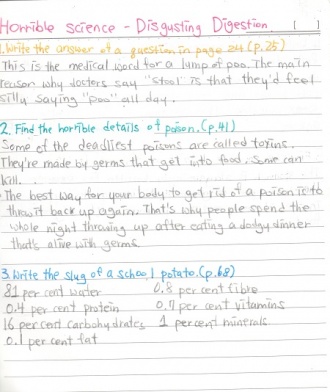 Horrible science - Disgusting Digestion [ ]
1. Write the answer of a question in page 24 (p.25)
This is the medical word for a lump of poo. The main
reason why doctors say "stool" is that they'd feel
silly saying "poo" all day.
2. Find the horrible details of poison. (p.41)
Some of the deadliest poisons are called toxins.
They're made by germs that get into food. Some can
kill.
• The best way for your body to get rid of a poison is to
throw it back up again. That's why people spend the
whole night throwing up after eating a dodgy dinner
that's alive with germs.
3. Write the slug of a school potato. (p.68)
81 per cent water 0.8 per cent fibre
0.4 per cent protein 0.7 per cent vitamins
16 per cent carbohydrates 1 per cent minerals
0.1 per cent fat